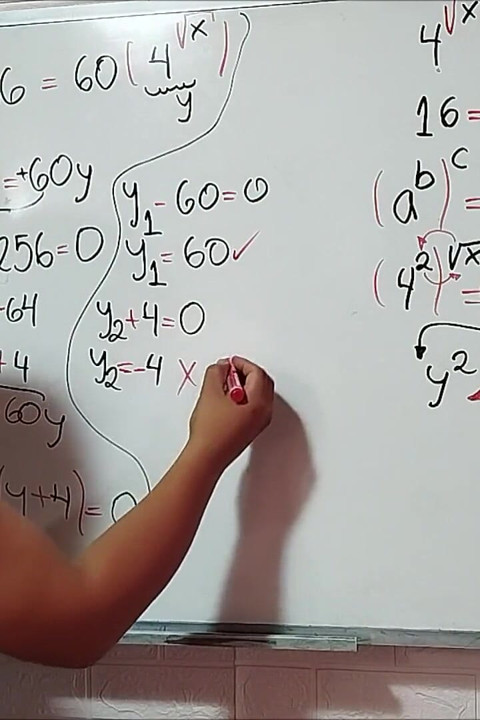 6 = 60(4^√x)
y
=+60y
256=0
-64
+4
60y
(y+4)=0
y₁-60=0
y₁=60✓
y₂+4=0
y₂=-4 x
4^√x
16=
(a^b)^c =
(4²)^√x =
y²